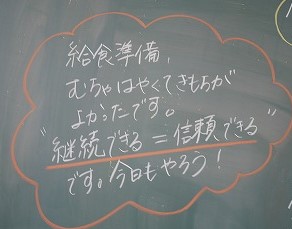 給食準備、
むちゃはやくてきもちが
よかったです。
"継続できる＝信頼できる"
です。今日もやろう！